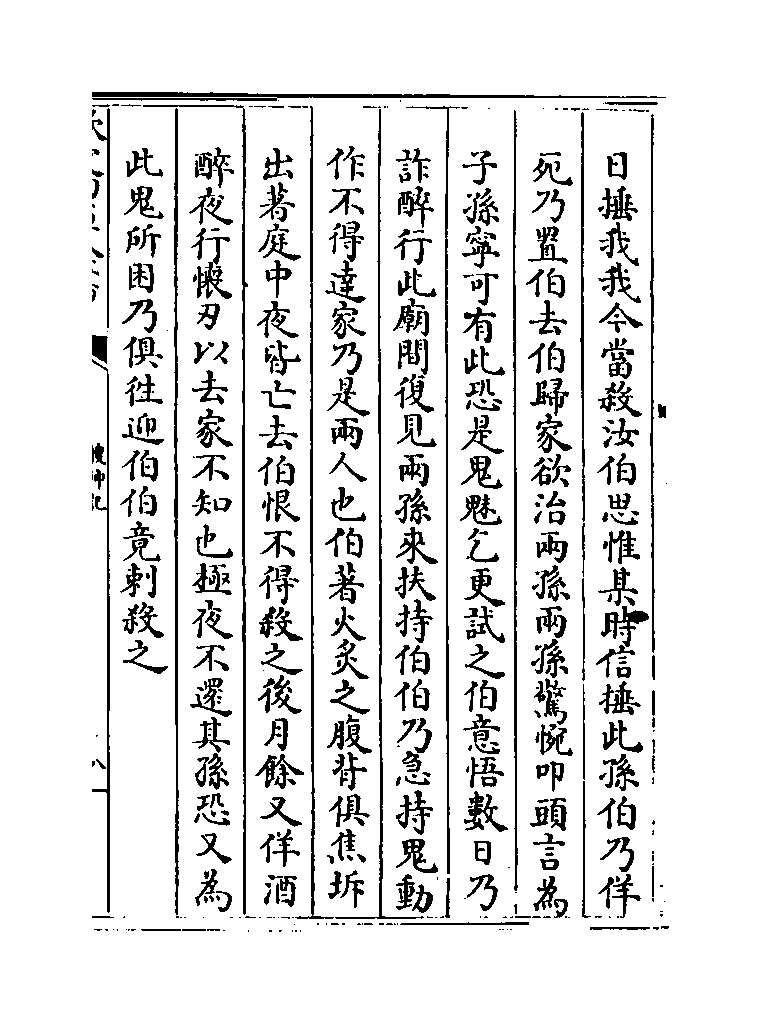 日捶我我今當殺汝伯思惟某時信捶此孫伯乃佯
死乃置伯去伯歸家欲治兩孫兩孫驚惋叩頭言為
子孫寧可有此恐是鬼魅乞更試之伯意悟數日乃
詐醉行此廟間復見兩孫來扶持伯伯乃急持鬼動
作不得達家乃是兩人也伯著火炙之腹背俱焦坼
出著庭中夜皆亡去伯恨不得殺之後月餘又佯酒
醉夜行懷刃以去家不知也極夜不還其孫恐又為
此鬼所困乃俱往迎伯伯竟刺殺之
搜神記